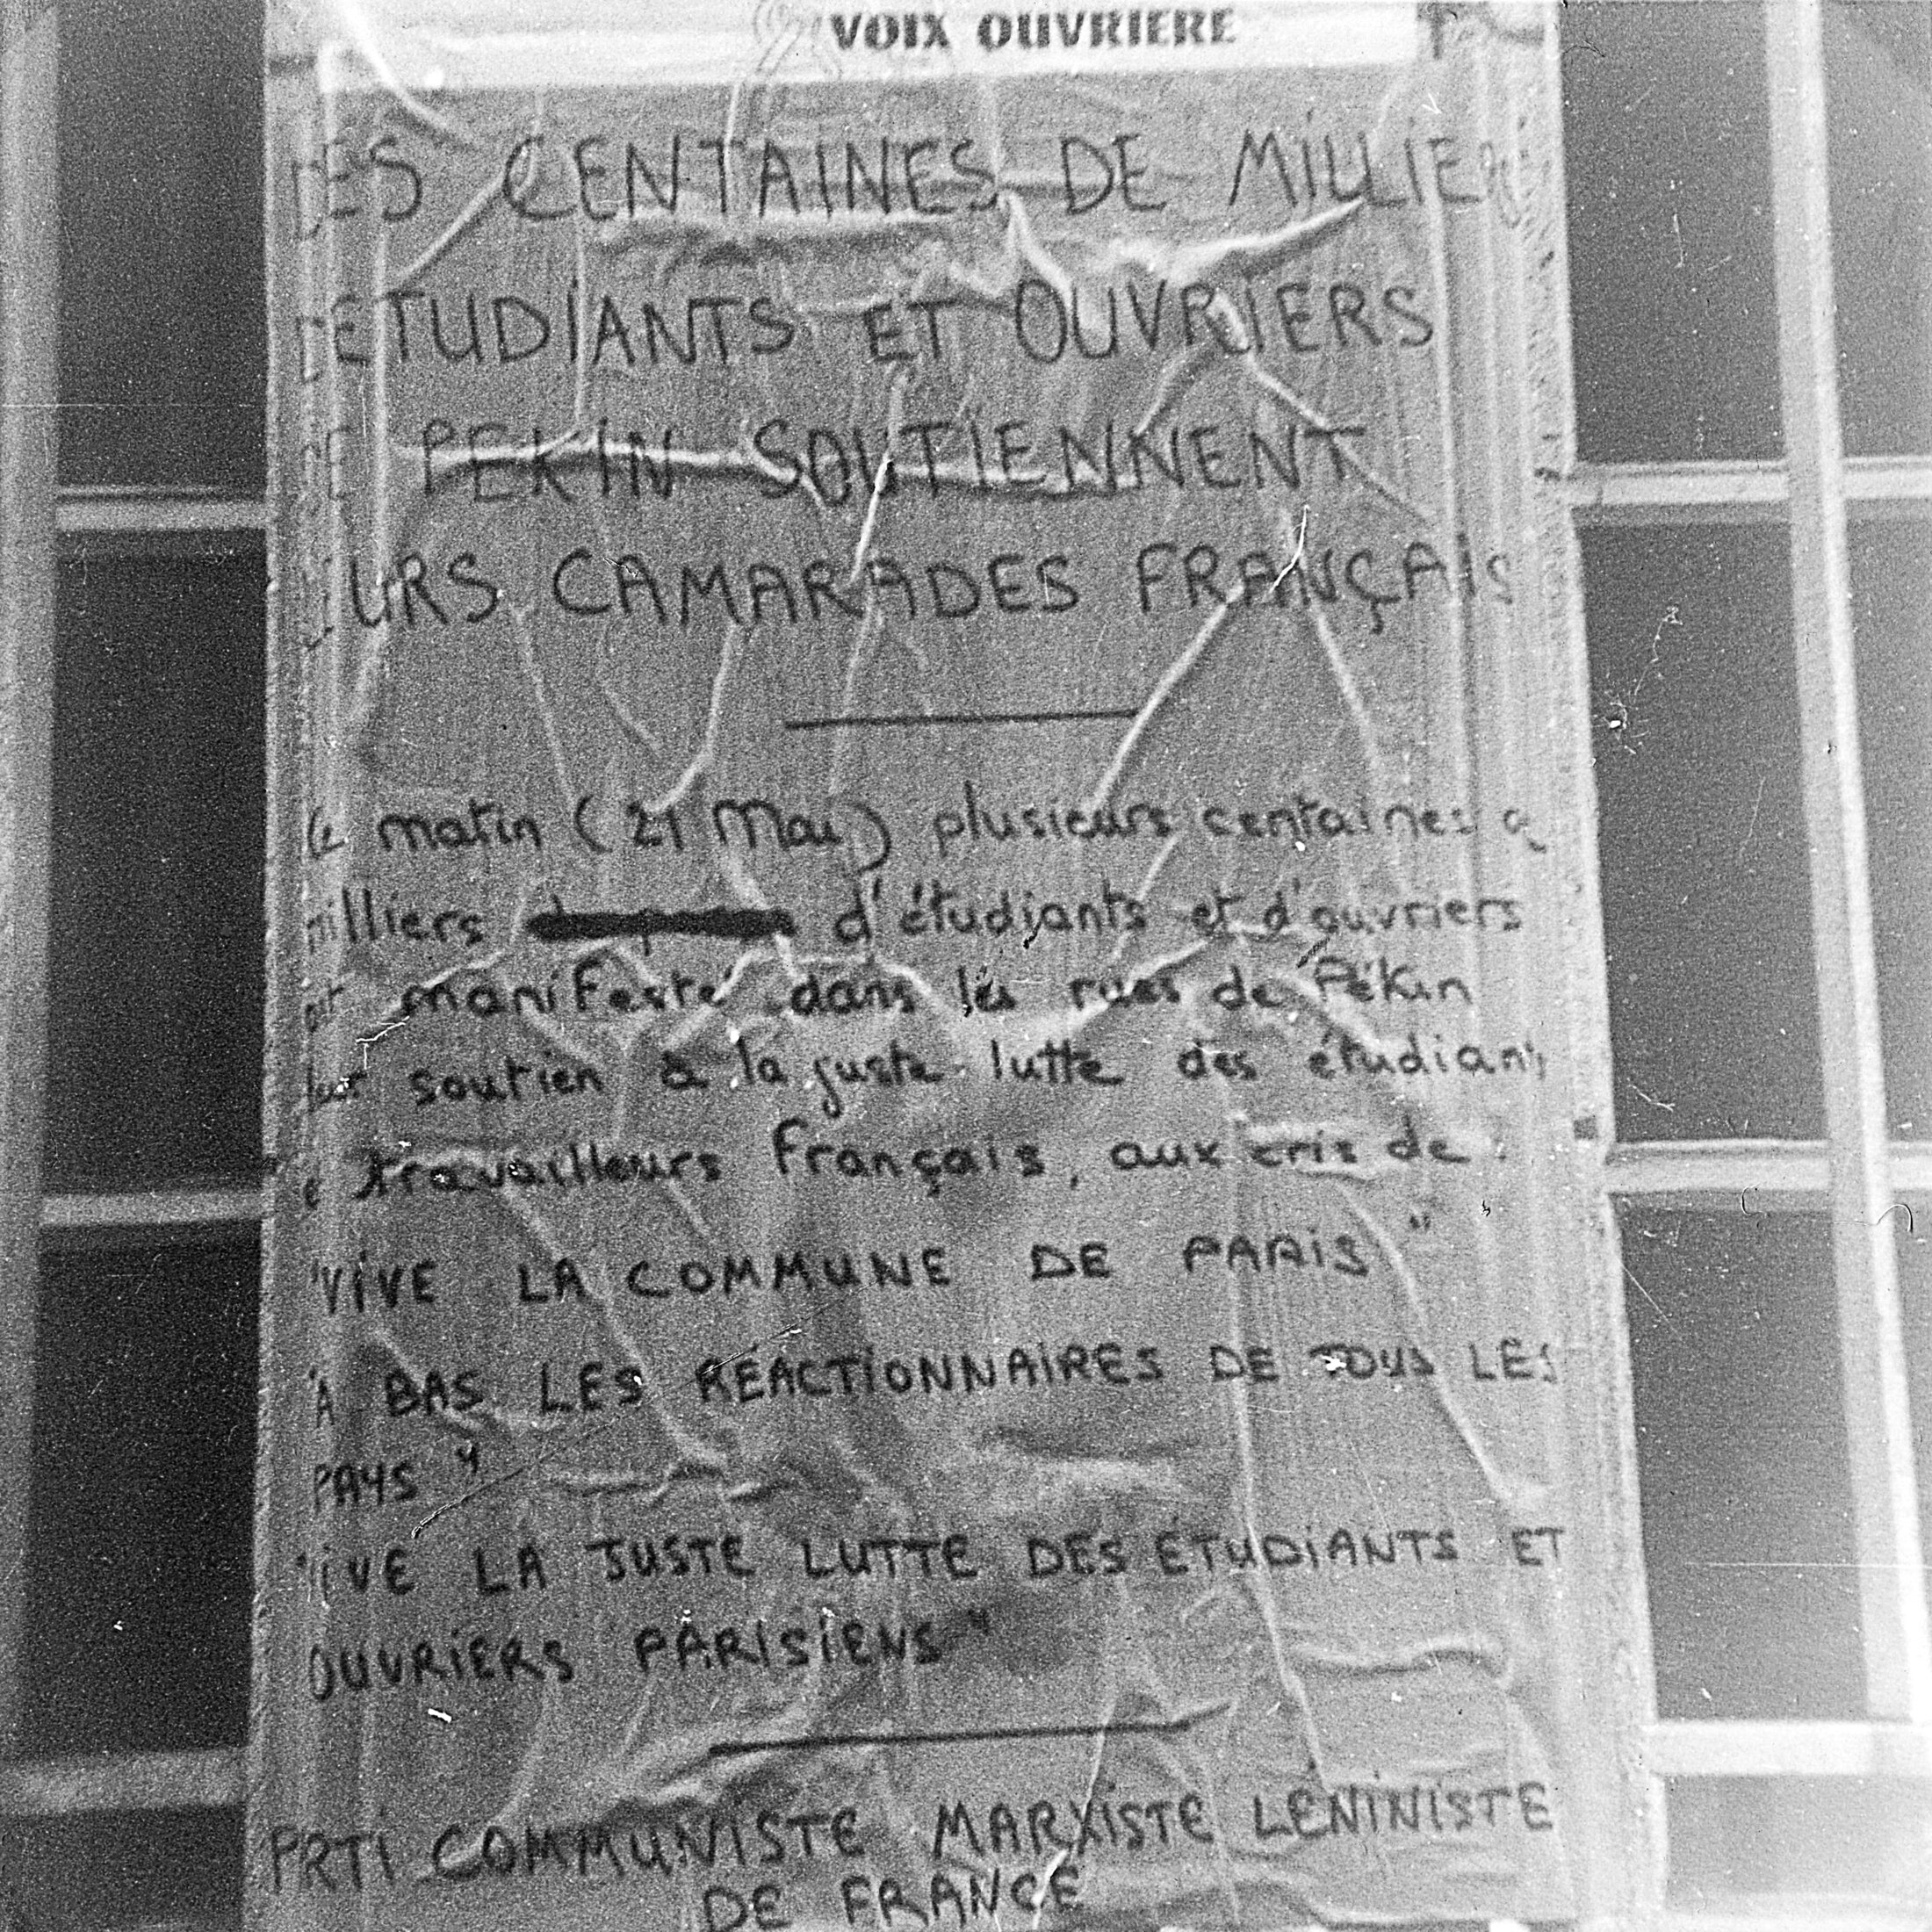 VOIX OUVRIERE
DES CENTAINES DE MILLIERS
D'ETUDIANTS ET OUVRIERS
DE PEKIN SOUTIENNENT
LEURS CAMARADES FRANÇAIS
Ce matin (21 Mai) plusieurs centaines de
milliers d'étudiants et d'ouvriers
ont manifesté dans les rues de Pékin
leur soutien à la juste lutte des étudiants
et travailleurs français, aux cris de :
"VIVE LA COMMUNE DE PARIS"
"A BAS LES REACTIONNAIRES DE TOUS LES
PAYS"
"VIVE LA JUSTE LUTTE DES ÉTUDIANTS ET
OUVRIERS PARISIENS"
PRTI COMMUNISTE MARXISTE LÉNINISTE
DE FRANCE